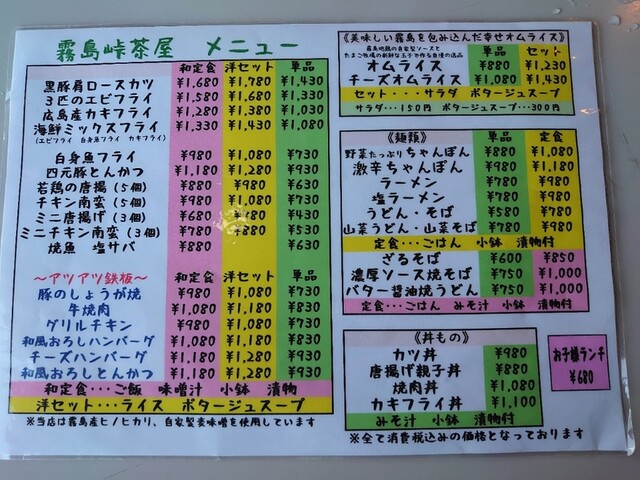 霧島峠茶屋　メニュー
和定食 洋セット 単品
黒豚肩ロースカツ ¥1,680 ¥1,780 ¥1,430
3匹のエビフライ ¥1,580 ¥1,680 ¥1,330
広島産カキフライ ¥1,280 ¥1,380 ¥1,030
海鮮ミックスフライ ¥1,330 ¥1,430 ¥1,080
(エビフライ 白身魚フライ カキフライ)
白身魚フライ ¥980 ¥1,080 ¥730
四元豚とんかつ ¥1,180 ¥1,280 ¥930
若鶏の唐揚(5個) ¥880 ¥980 ¥630
チキン南蛮(5個) ¥980 ¥1,080 ¥730
ミニ唐揚げ(3個) ¥680 ¥780 ¥430
ミニチキン南蛮(3個) ¥780 ¥880 ¥530
焼魚　塩サバ ¥880 ¥630
～アツアツ鉄板～ 和定食 洋セット 単品
豚のしょうが焼 ¥980 ¥1,080 ¥730
牛焼肉 ¥1,080 ¥1,180 ¥830
グリルチキン ¥980 ¥1,080 ¥730
和風おろしハンバーグ ¥1,080 ¥1,180 ¥830
チーズハンバーグ ¥1,180 ¥1,280 ¥930
和風おろしとんかつ ¥1,180 ¥1,280 ¥930
和定食・・・ご飯　味噌汁　小鉢　漬物
洋セット・・・ライス　ポタージュスープ
※当店は霧島産ヒノヒカリ、自家製麦味噌を使用しています
《美味しい霧島を包み込んだ幸せオムライス》
霧島地鶏の自家製ソースと
たまご牧場の新鮮な玉子で作る自慢の逸品
単品 セット
オムライス ¥880 ¥1,230
チーズオムライス ¥1,080 ¥1,430
セット・・・サラダ　ポタージュスープ
サラダ・・・150円　ポタージュスープ・・・300円
《麺類》 単品 定食
野菜たっぷりちゃんぽん ¥880 ¥1,080
激辛ちゃんぽん ¥980 ¥1,180
ラーメン ¥780 ¥980
塩ラーメン ¥780 ¥980
うどん・そば ¥580 ¥780
山菜うどん・山菜そば ¥780 ¥980
定食・・・ごはん　小鉢　漬物付
ざるそば ¥600 ¥850
濃厚ソース焼そば ¥750 ¥1,000
バター醤油焼うどん ¥750 ¥1,000
定食・・・ごはん　みそ汁　小鉢　漬物付
《丼もの》
カツ丼 ¥980
唐揚げ親子丼 ¥880
焼肉丼 ¥1,080
カキフライ丼 ¥1,100
みそ汁　小鉢　漬物付
お子様ランチ
¥680
※全て消費税込みの価格となっております